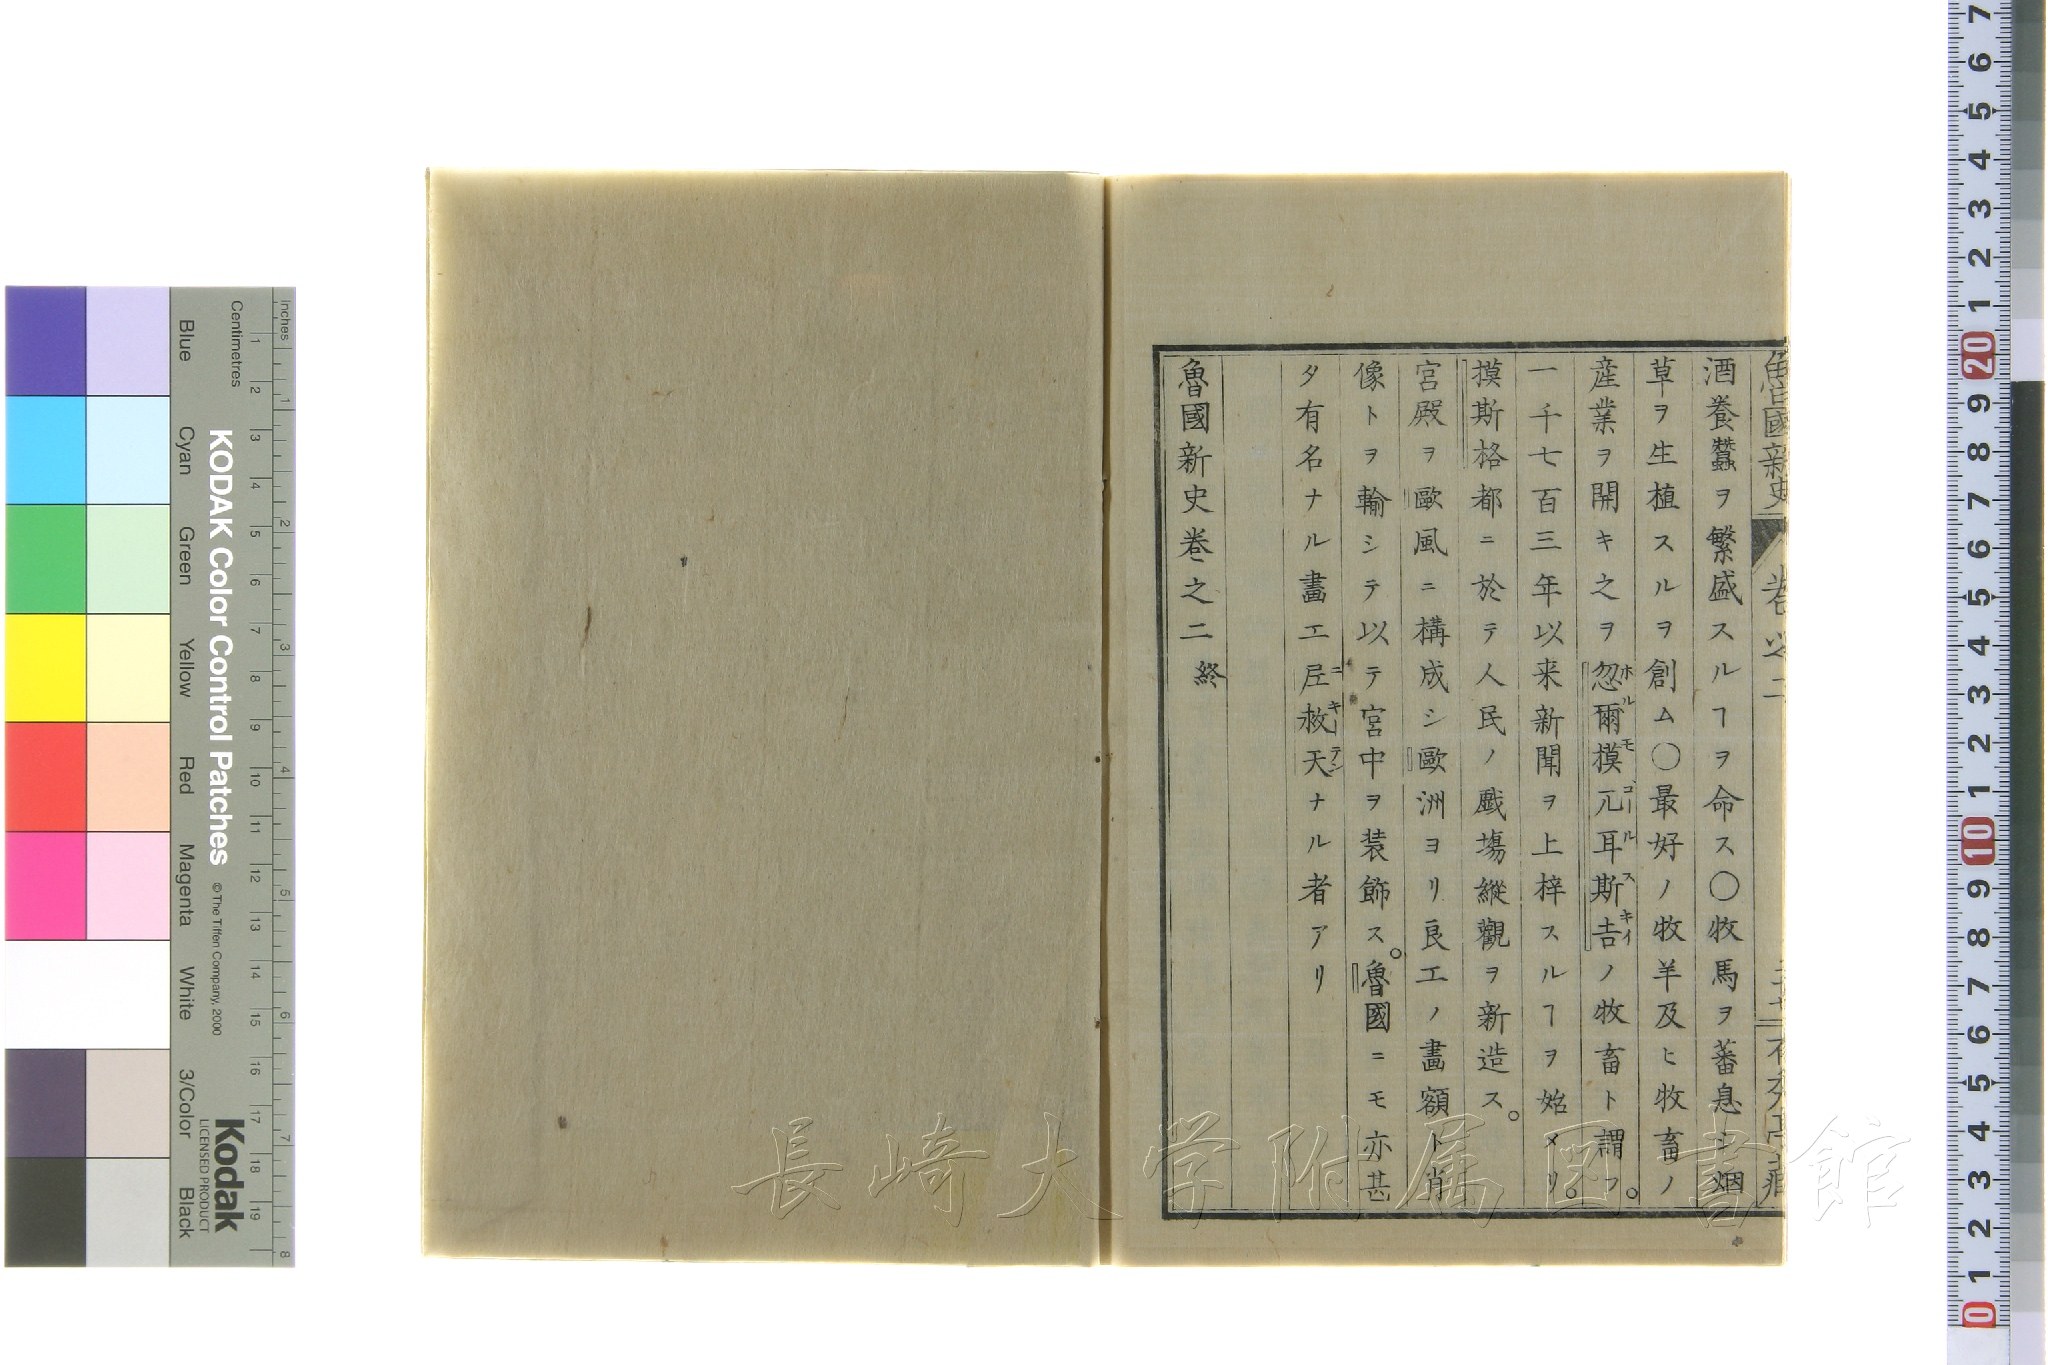 魯國新史 卷之二
酒養蠶ヲ繁盛スルヿヲ命ス〇牧馬ヲ蕃息シ烟
草ヲ生植スルヲ創ム〇最好ノ牧羊及ヒ牧畜ノ
産業ヲ開キ之ヲ忽爾摸兀耳斯吉ノ牧畜ト謂フ。
ホルモゴールスキイ
一千七百三年以来新聞ヲ上梓スルヿヲ始メリ。
摸斯格都ニ於テ人民ノ戲場縱觀ヲ新造ス。
宮殿ヲ歐風ニ構成シ歐洲ヨリ良工ノ畫額ト肖
像トヲ輸シテ以テ宮中ヲ装飾ス。魯國ニモ亦甚
タ有名ナル畫工𡱝赦天ナル者アリ
ニキーテン
魯國新史卷之二 終
長崎大学附属図書館
KODAK Color Control Patches
© The Tiffen Company, 2000
Kodak
LICENSED PRODUCT
Inches
Centimetres
Blue
Cyan
Green
Yellow
Red
Magenta
White
3/Color
Black
1 2 3 4 5 6 7 8 9 10 11 12 13 14 15 16 17 18 19
1 2 3 4 5 6 7 8
7 6 5 4 3 2 1 20 9 8 7 6 5 4 3 2 1 10 9 8 7 6 5 4 3 2 1 0